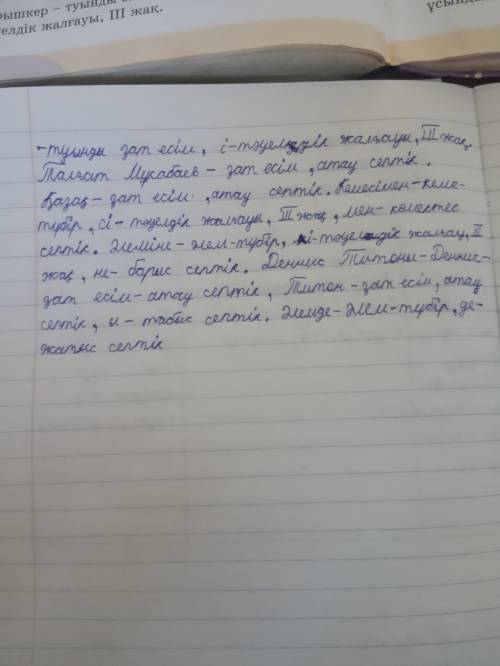 рышкер – туынды
елдік жалғауы, III жақ.
ұсын
-туынды зат есім, і-тәуелдік жалғауы, III жақ.
Талғат Мұсабаев - зат есім, атау септік.
Қазақ - зат есім, атау септік. Кемесімен-кеме-
түбір, сі - тәуелдік жалғауы, III жақ, мен- көмектес
септік. Әлеміне - әлем-түбір, і-тәуелдік жалғау, II
жақ, не- барыс септік. Деннис Титони-Деннис-
зат есім- атау септік, Титон - зат есім, атау
септік, и - табыс септік. Әлемде-әлем-түбір, де-
жатыс септік